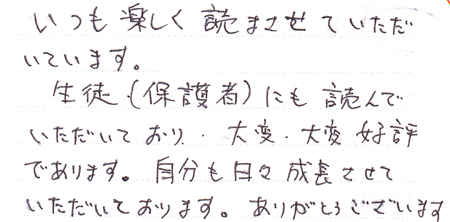 いつも楽しく読まさせていただ
いています。
生徒(保護者)にも読んで
いただいており、大変、大変好評
であります。自分も日々成長させて
いただいております。ありがとうございます